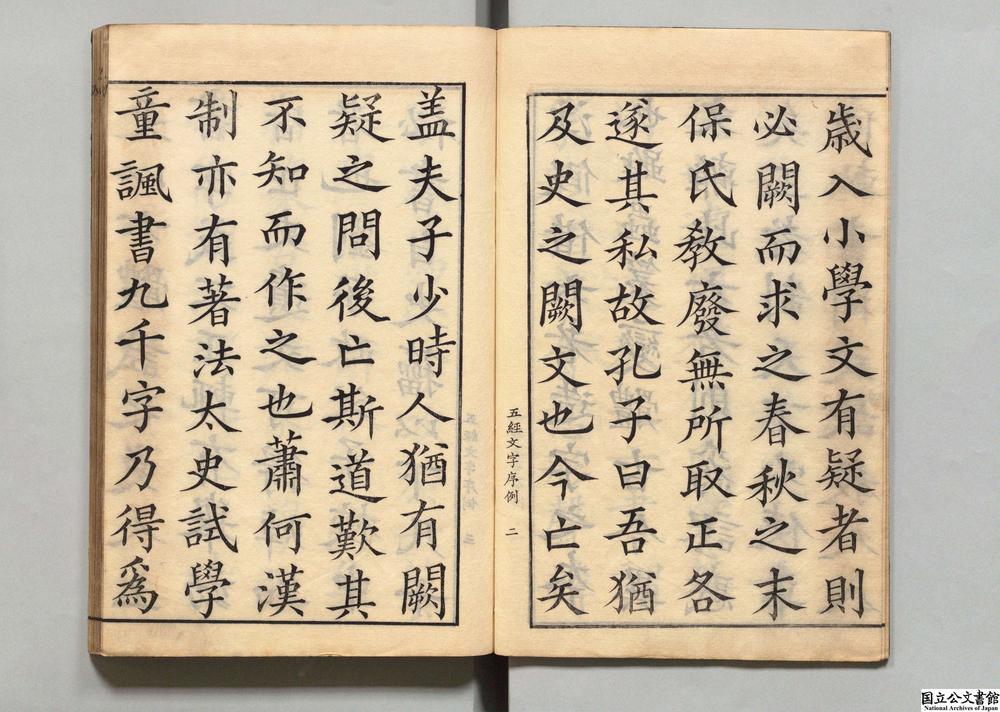 歳入小學文有疑者則
必闕而求之春秋之末
保氏教廢無所取正各
遂其私故孔子曰吾猶
及史之闕文也今亡矣
五經文字序例 二
盖夫子少時人猶有闕
疑之問後亡斯道歎其
不知而作之也蕭何漢
制亦有著法太史試學
童諷書九千字乃得爲
国立公文書館
National Archives of Japan